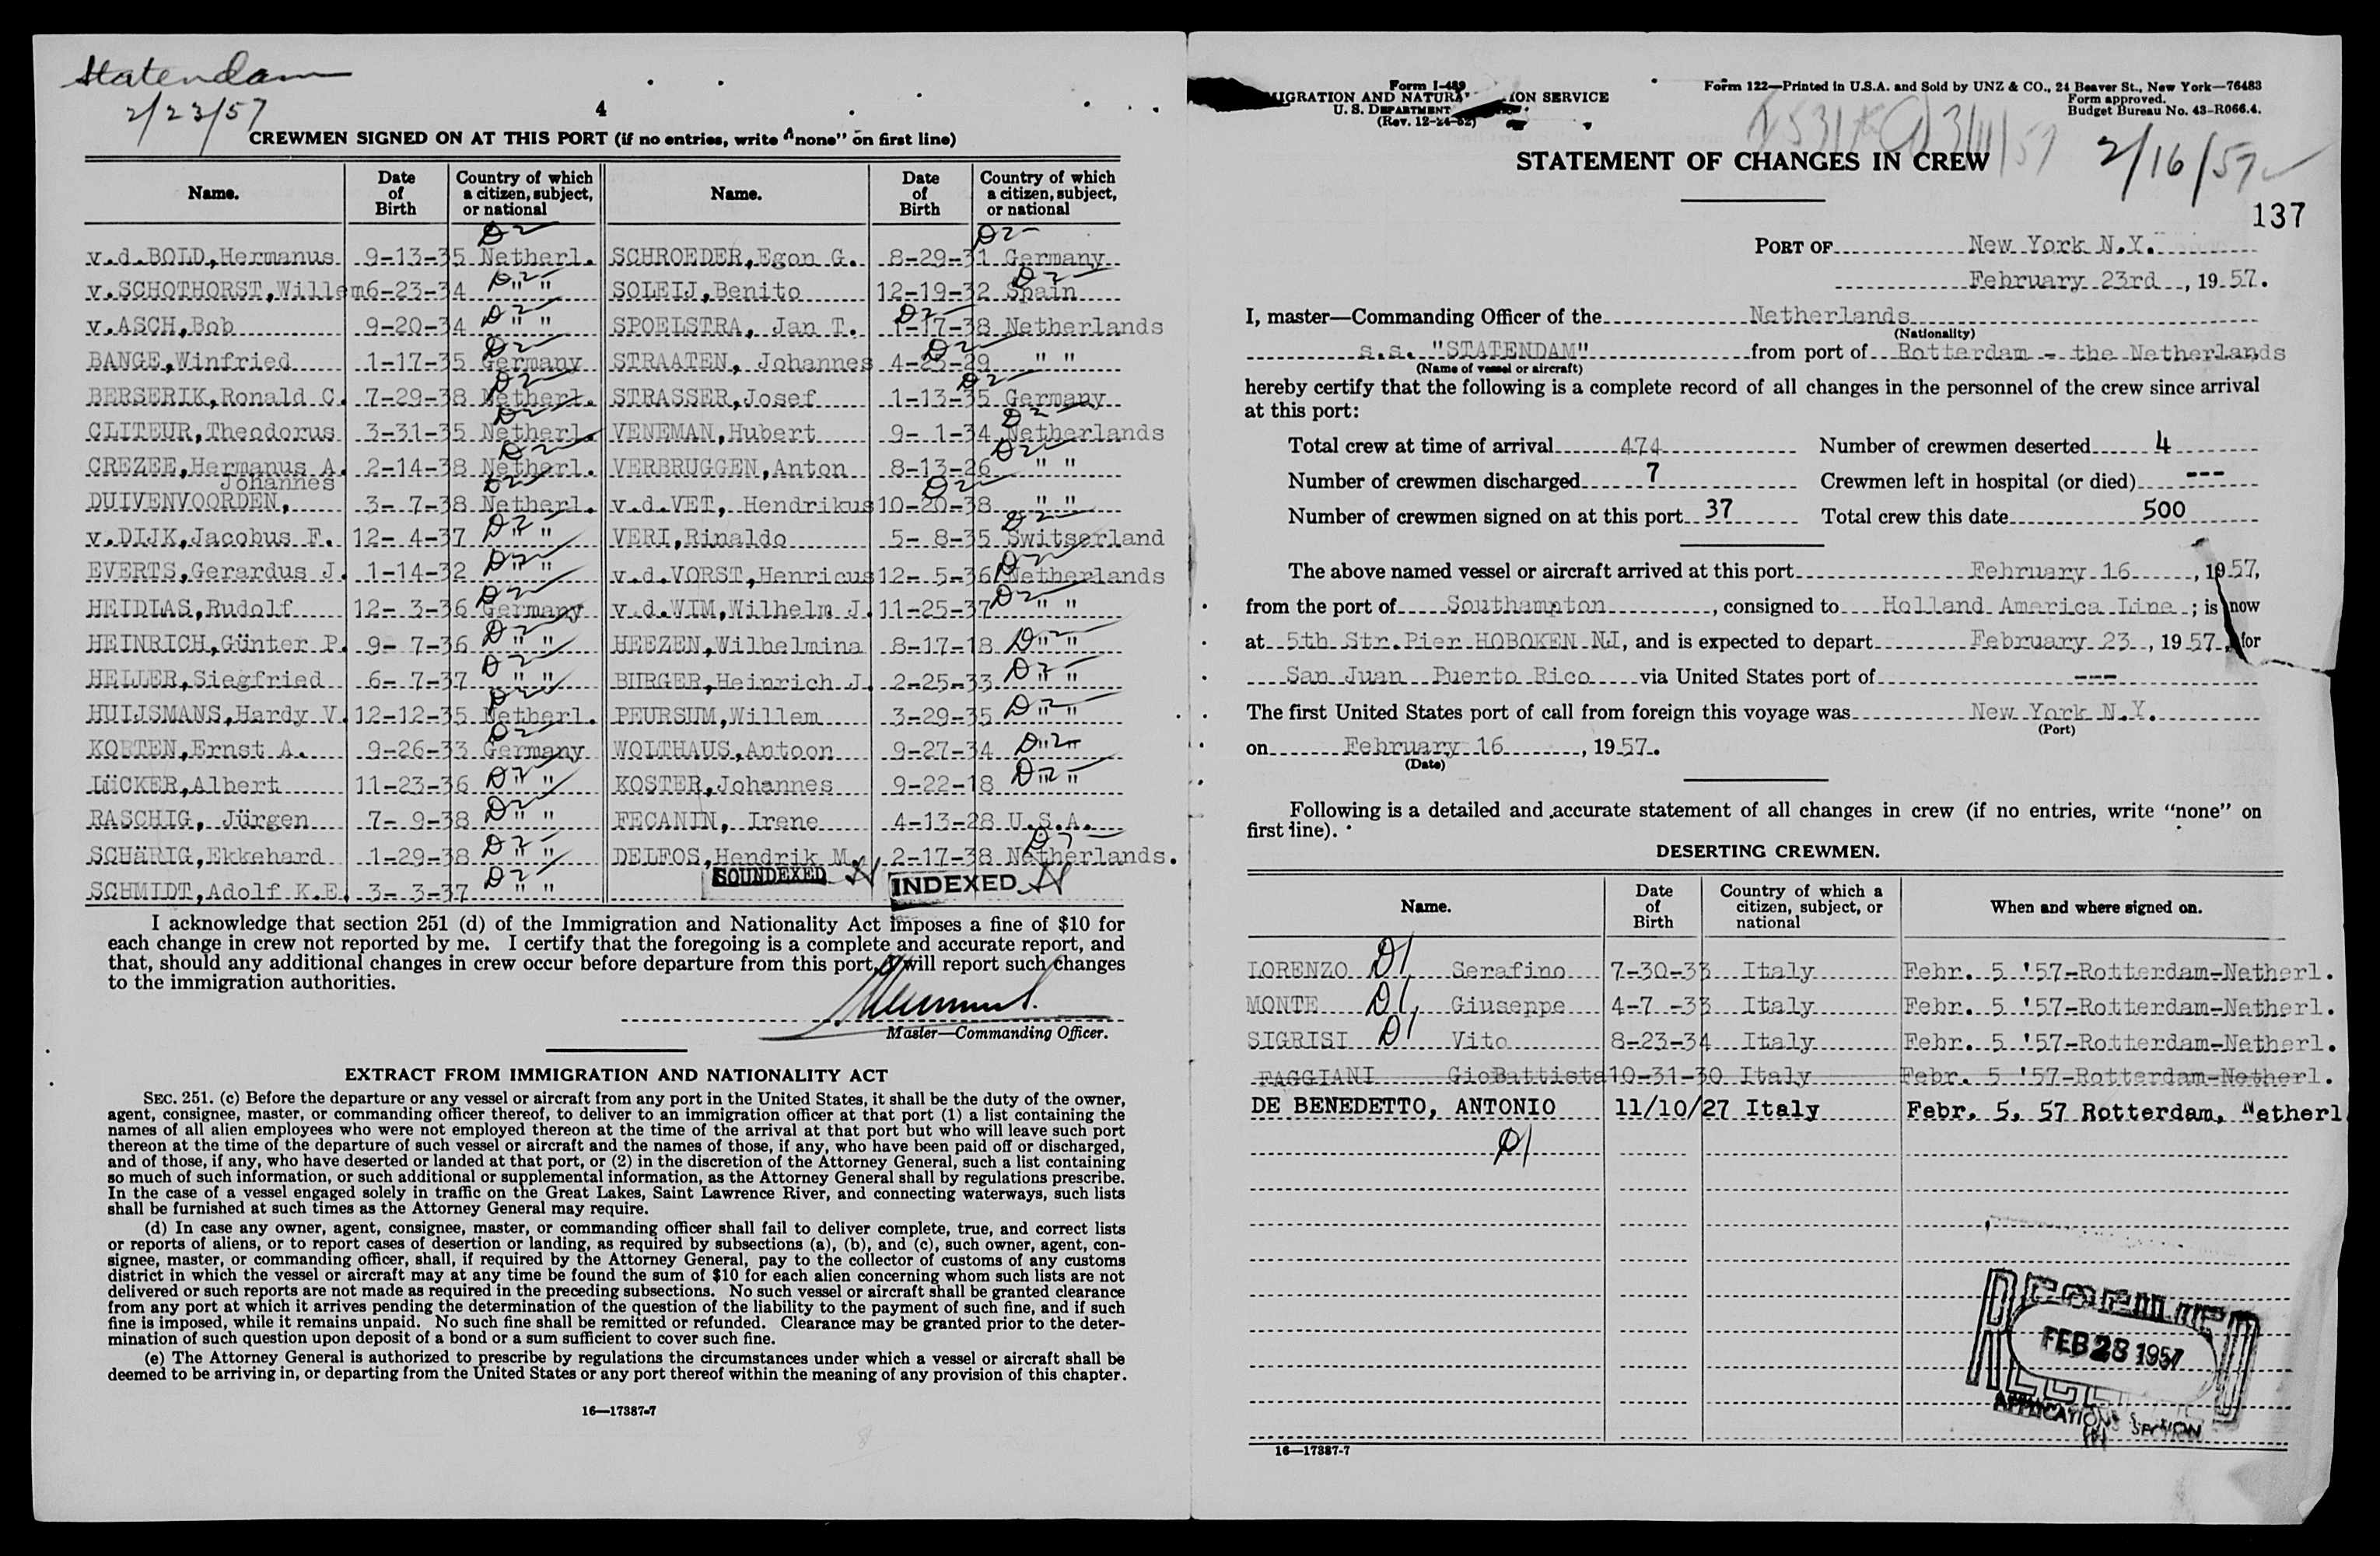 Statendam
2/23/57
4
CREWMEN SIGNED ON AT THIS PORT (if no entries, write "none" on first line)
Name. Date of Birth Country of which a citizen, subject, or national Name. Date of Birth Country of which a citizen, subject, or national
v.d.BOLD,Hermanus 9-13-35 Netherl. D2 SCHROEDER,Egon G. 8-29-31 Germany D2
v.SCHOTHORST,Willem 6-23-34 " " D2 SOLEIJ,Benito 12-19-32 Spain D2
v.ASCH,Bob 9-20-34 " " D2 SPOELSTRA, Jan T. 1-17-38 Netherlands D2
BANGE,Winfried 1-17-35 Germany D2 STRAATEN, Johannes 4-23-29 " " D2
BERSERIK,Ronald C. 7-29-38 Netherl. D2 STRASSER,Josef 1-13-35 Germany D2
CLITEUR,Theodorus 3-31-35 Netherl. D2 VENEMAN,Hubert 9- 1-34 Netherlands D2
CREZEE,Hermanus A. 2-14-38 Netherl. D2 VERBRUGGEN,Anton 8-13-26 " " D2
Johannes
DUIVENVOORDEN, 3- 7-38 Netherl. D2 v.d.VET, Hendrikus 10-20-38 " " D2
v.DIJK,Jacobus F. 12- 4-37 " " D2 VERI,Rinaldo 5- 8-35 Switserland D2
EVERTS,Gerardus J. 1-14-32 " " D2 v.d.VORST,Henricus 12- 5-36 Netherlands D2
HEIDIAS,Rudolf 12- 3-36 Germany D2 v.d.WIM,Wilhelm J. 11-25-37 " " D2
HEINRICH,Günter P. 9- 7-36 " " D2 HEEZEN,Wilhelmina 8-17-18 " " D2
HELLER,Siegfried 6- 7-37 " " D2 BURGER,Heinrich J. 2-25-33 " " D2
HUIJSMANS,Hardy V. 12-12-35 Netherl. D2 PEURSUM,Willem 3-29-35 " " D2
KORTEN,Ernst A. 9-26-33 Germany D2 WOLTHAUS,Antoon 9-27-34 " " D2
LüCKER,Albert 11-23-36 " " D2 KOSTER,Johannes 9-22-18 " " D2
RASCHIG, Jürgen 7- 9-38 " " D2 FECANIN, Irene 4-13-28 U.S.A.
SCHäRIG,Ekkehard 1-29-38 " " D2 DELFOS,Hendrik M. 2-17-38 Netherlands. D2
SCHMIDT,Adolf K.E. 3- 3-37 " " D2 SOUNDEXED INDEXED
I acknowledge that section 251 (d) of the Immigration and Nationality Act imposes a fine of $10 for
each change in crew not reported by me. I certify that the foregoing is a complete and accurate report, and
that, should any additional changes in crew occur before departure from this port, I will report such changes
to the immigration authorities.
Master—Commanding Officer.
EXTRACT FROM IMMIGRATION AND NATIONALITY ACT
SEC. 251. (c) Before the departure or any vessel or aircraft from any port in the United States, it shall be the duty of the owner,
agent, consignee, master, or commanding officer thereof, to deliver to an immigration officer at that port (1) a list containing the
names of all alien employees who were not employed thereon at the time of the arrival at that port but who will leave such port
thereon at the time of the departure of such vessel or aircraft and the names of those, if any, who have been paid off or discharged,
and of those, if any, who have deserted or landed at that port, or (2) in the discretion of the Attorney General, such a list containing
so much of such information, or such additional or supplemental information, as the Attorney General shall by regulations prescribe.
In the case of a vessel engaged solely in traffic on the Great Lakes, Saint Lawrence River, and connecting waterways, such lists
shall be furnished at such times as the Attorney General may require.
(d) In case any owner, agent, consignee, master, or commanding officer shall fail to deliver complete, true, and correct lists
or reports of aliens, or to report cases of desertion or landing, as required by subsections (a), (b), and (c), such owner, agent, con-
signee, master, or commanding officer, shall, if required by the Attorney General, pay to the collector of customs of any customs
district in which the vessel or aircraft may at any time be found the sum of $10 for each alien concerning whom such lists are not
delivered or such reports are not made as required in the preceding subsections. No such vessel or aircraft shall be granted clearance
from any port at which it arrives pending the determination of the question of the liability to the payment of such fine, and if such
fine is imposed, while it remains unpaid. No such fine shall be remitted or refunded. Clearance may be granted prior to the deter-
mination of such question upon deposit of a bond or a sum sufficient to cover such fine.
(e) The Attorney General is authorized to prescribe by regulations the circumstances under which a vessel or aircraft shall be
deemed to be arriving in, or departing from the United States or any port thereof within the meaning of any provision of this chapter.
16—17387-7
Form I-489
IGRATION AND NATURA ION SERVICE
U. S. DEPARTMENT
(Rev. 12-24-52)
Form 122—Printed in U.S.A. and Sold by UNZ & CO., 24 Beaver St., New York—76483
Form approved.
Budget Bureau No. 43-R066.4.
3/11/57
2/16/57
STATEMENT OF CHANGES IN CREW
137
PORT OF New York N.Y.
February 23rd , 19 57.
I, master—Commanding Officer of the Netherlands
(Nationality)
s.s. "STATENDAM" from port of Rotterdam - the Netherlands
(Name of vessel or aircraft)
hereby certify that the following is a complete record of all changes in the personnel of the crew since arrival
at this port:
Total crew at time of arrival 474 Number of crewmen deserted 4
Number of crewmen discharged 7 Crewmen left in hospital (or died) ---
Number of crewmen signed on at this port 37 Total crew this date 500
The above named vessel or aircraft arrived at this port February 16 , 1957,
from the port of Southampton , consigned to Holland America Line ; is now
at 5th Str.Pier HOBOKEN NJ, and is expected to depart February 23 , 19 57, for
San Juan Puerto Rico via United States port of ---
The first United States port of call from foreign this voyage was New York N.Y.
(Port)
on February 16 , 1957.
(Date)
Following is a detailed and accurate statement of all changes in crew (if no entries, write "none" on
first line).
DESERTING CREWMEN.
Name. Date of Birth Country of which a citizen, subject, or national When and where signed on.
LORENZO D1 Serafino 7-30-33 Italy Febr. 5 '57-Rotterdam-Netherl.
MONTE D1 Giuseppe 4-7 -33 Italy Febr. 5 '57-Rotterdam-Netherl.
SIGRISI D1 Vito 8-23-34 Italy Febr. 5 '57-Rotterdam-Netherl.
FAGGIANI GioBattista 10-31-30 Italy Febr. 5 '57-Rotterdam-Netherl.
DE BENEDETTO, ANTONIO 11/10/27 Italy Febr. 5, 57 Rotterdam, Netherl
D1
RECEIVED
FEB 28 1957
APPLICATION SECTION
16—17387-7